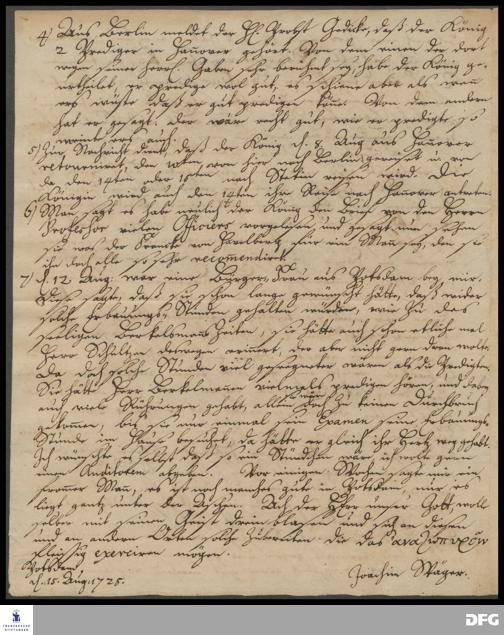 4) Aus Berlin meldet der H. Probst Gedicke, daß der König
2 Prediger in Hannover gehört. Von dem einen der dort
wegen seiner herrl. Gaben sehr berühmt sey, habe der König ge-
urtheilet, er predige wol gut, es schiene aber als wenn
ers wüste daß er gut predigen könne. Von dem andern
hat er gesagt: der wäre recht gut, wie er predigte so
meinte ers auch.
5) Zur Nachricht dient, daß der König d. 8. Aug aus Hannover
retourniret, den 10ten von hier nach Berlin gereiset ist, von
da den 14ten oder 15ten nach Stetin reisen wird. Die
Königin wird auch den 14ten ihre Reise nach Hanover antreten.
6) Man sagt es habe neulich der König den Brief von dem Herrn
Professor vielen Officiers vorgelesen und gesagt nun sehen
sie was der Francke von für ein Mann sey, den sie
ihr doch alle so sehr recomendiret.
7) d. 12 Aug. war eine Bürgers Frau aus Potsdam bey mir.
Diese sagte, daß sie schon lange gewünscht hätte, daß wieder
solche Erbauungs-Stunden gehalten würden, wie zu des
seeligen Berkelmanns Zeiten, sie hätte auch schon etliche mal
Herr Schultzen deswegen erinnert, der aber nicht gern dran wolte.
Da doch solche Stunden viel gesegneter wären als die Predigten.
Sie hätte Herr Berkelmannen vielmals predigen hören, und davon
auch viele Rührungen gehabt, allein zu keinem Durchbruch
gekommen, bis sie nur einmal ein Examen seine Erbauungs-
Stunde im Hause besuchet, da hätte er gleich ihr Hertz weg gehabt.
Ich wünschte es selbst daß so ein Stündchen wäre, ich wolte gern
einen Auditorem abgeben. Vor einigen Wochen sagte mir ein
frommer Mann, es ist noch manches gute in Potsdam, nur es
liegt gantz unter der Aschen. Ach der Herr unser Gott, woll
selber mit seinem Geist drein blasen und sich an diesen
und an andern Orten solche Zubereiten die das ἀναζωπυρεῖν
fleißig exerciren mögen.
Potsdam
d. 15. Aug. 1728.
Joachim Wäger.
FRANCKESCHE STIFTUNGEN
DFG